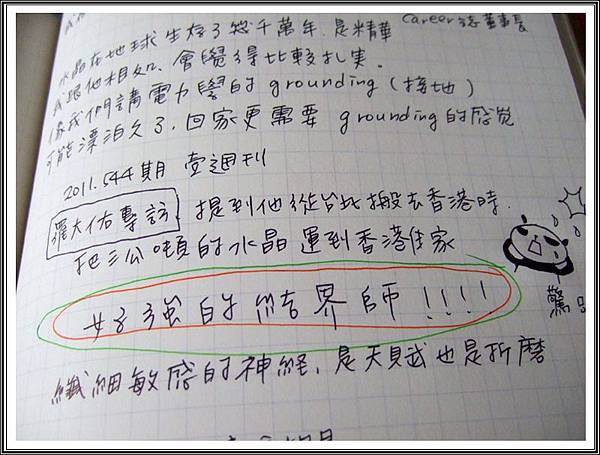 Career誌董事長
水晶在地球生存了幾千萬年,是精華
我跟他相処,會覺得比較扎実。
像我們講電力學的grounding(接地)
可能漂泊久了,回家更需要grounding的感覚
2011.544期 壹週刊
羅大佑專訪 提到他從台北搬去香港時.
把三公噸的水晶運到香港住家
好強的結界師!!!!
驚
纖細敏感的神経,是天賦也是折磨